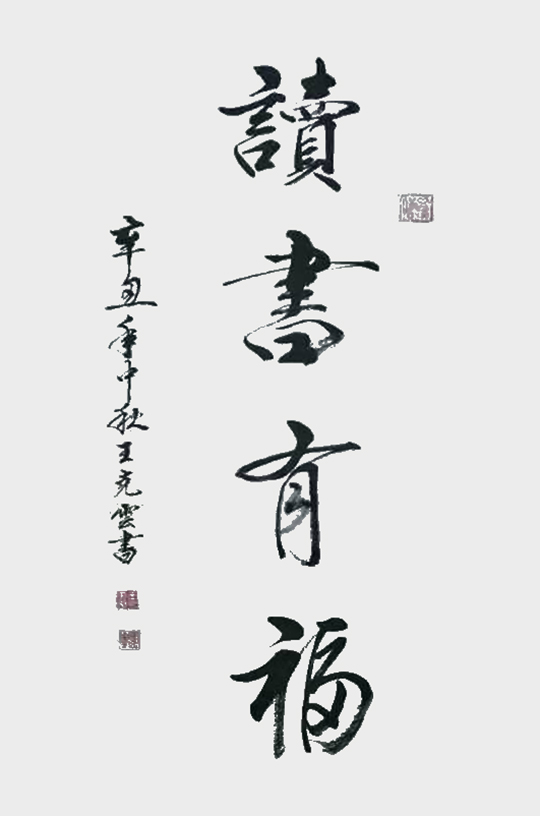 讀書有福
辛丑年中秋王克雲書